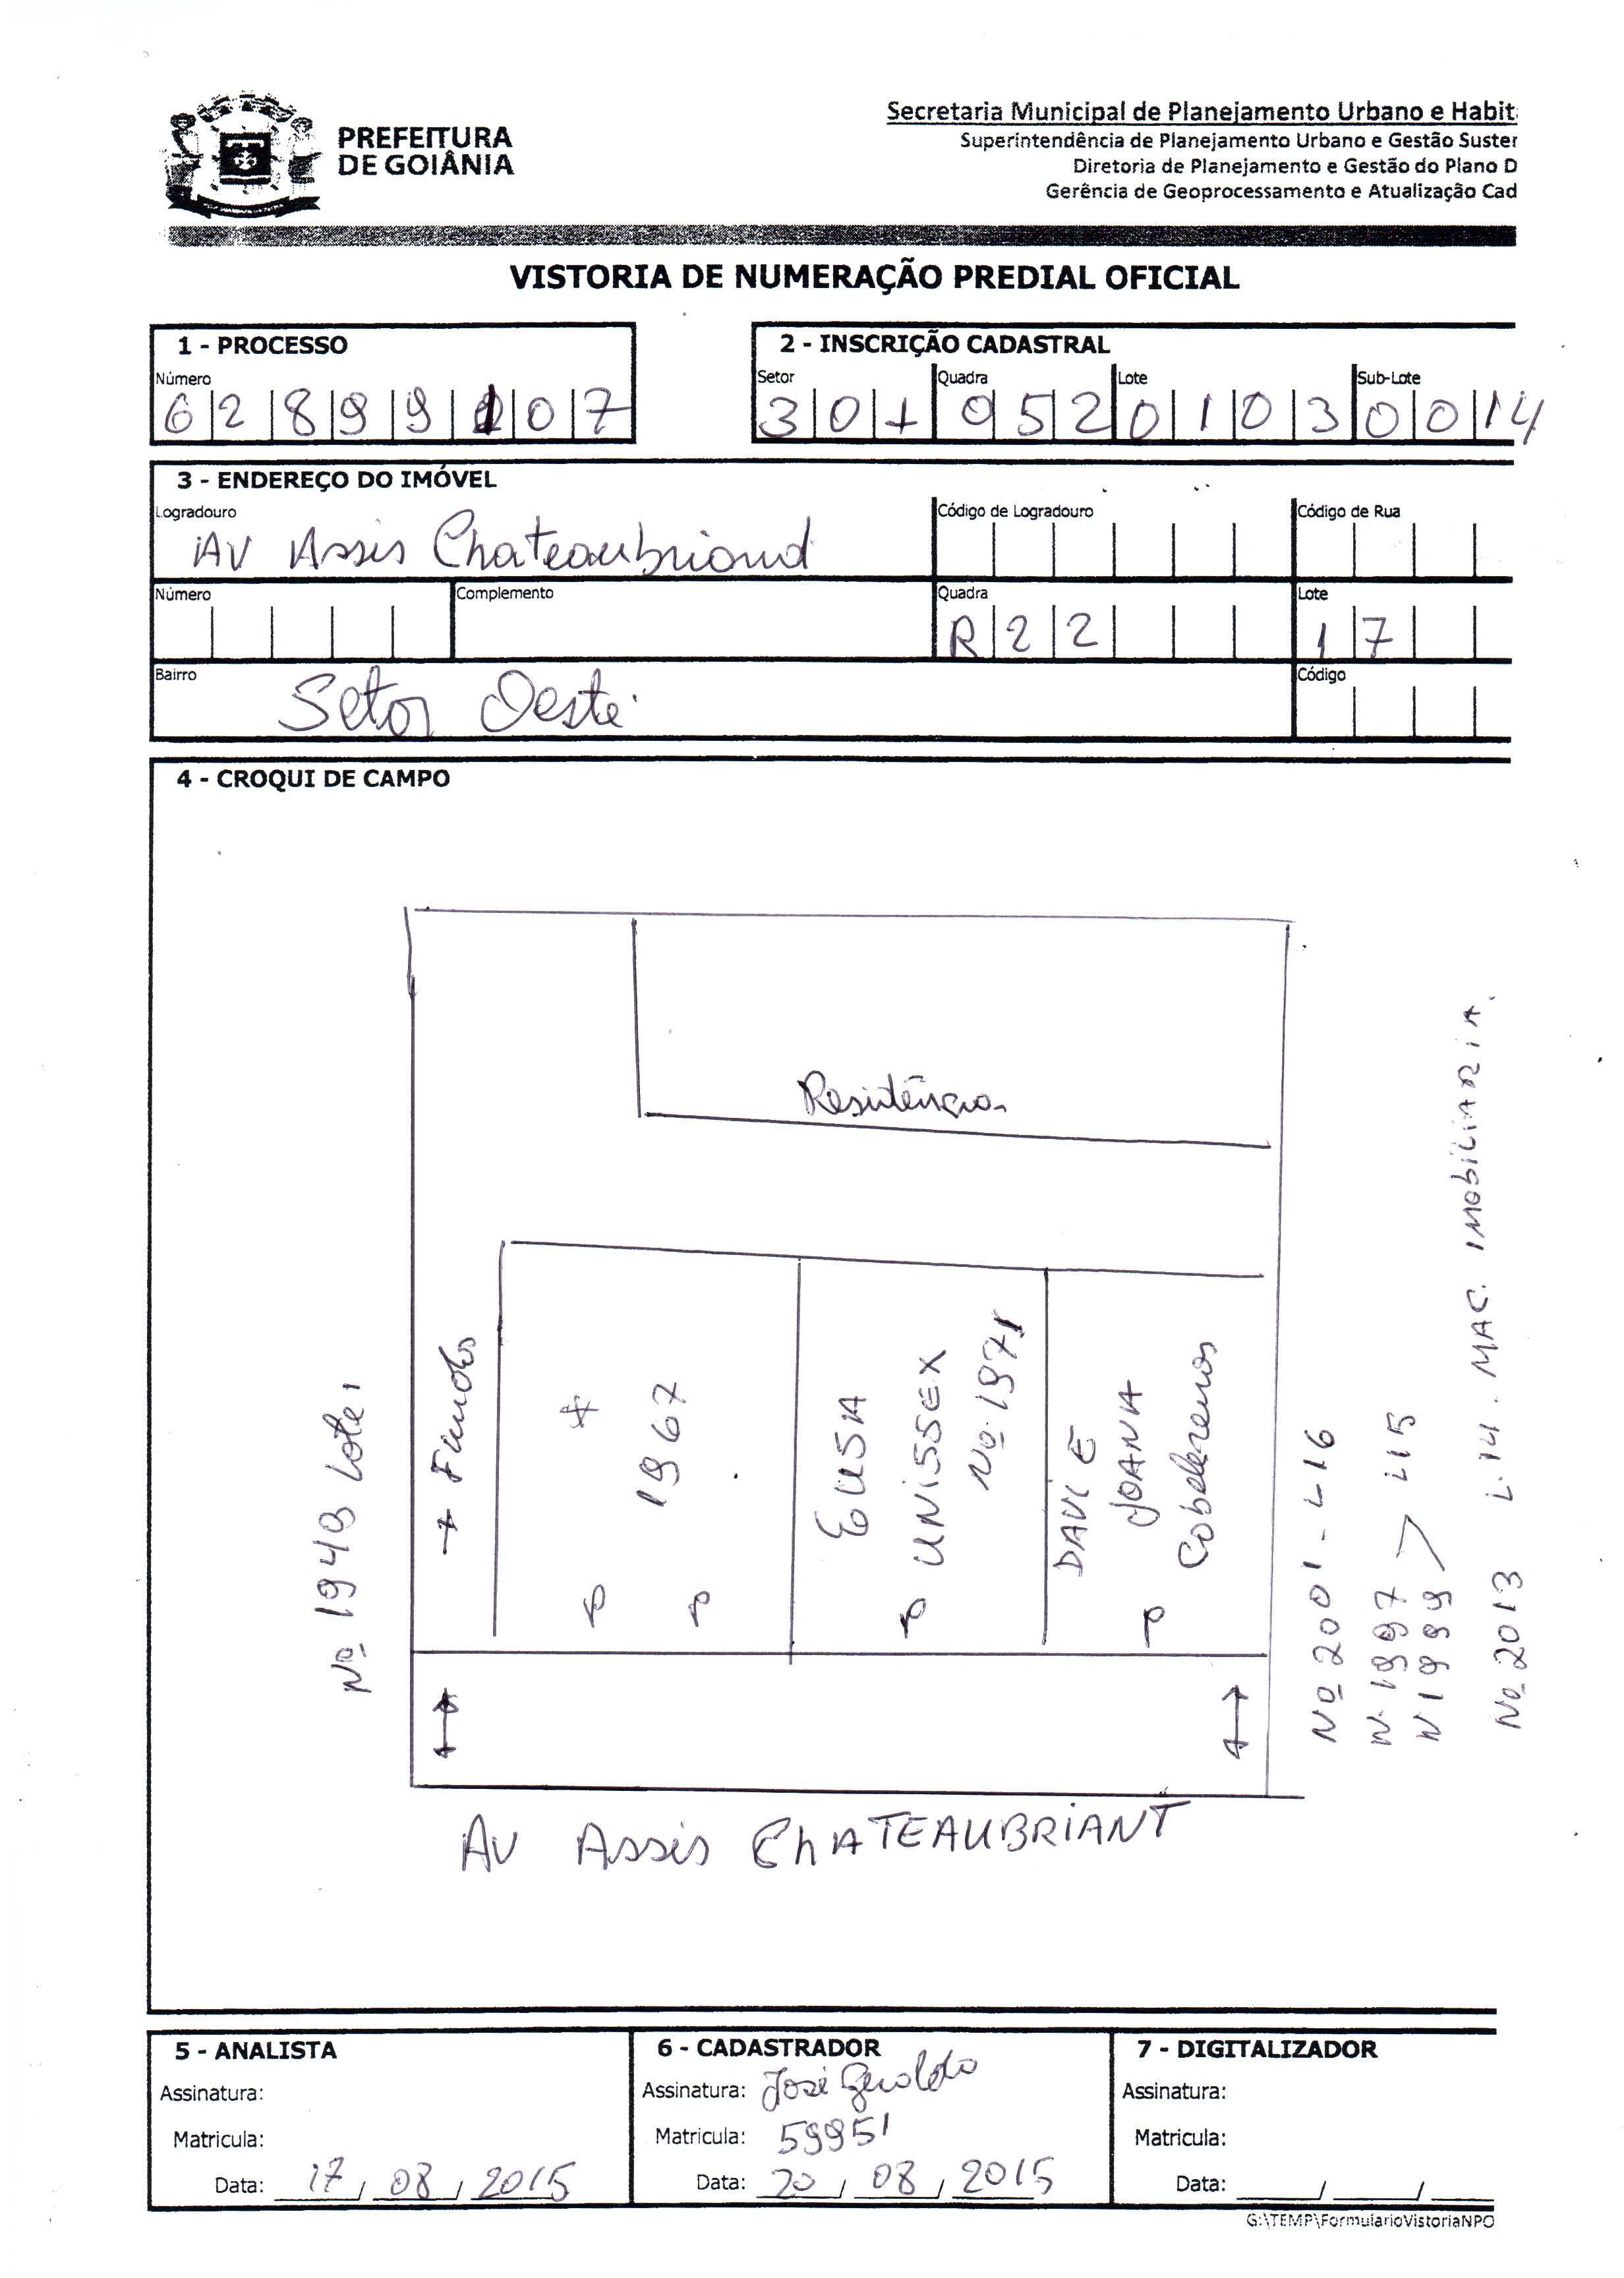 PREFEITURA
DE GOIÂNIA
Secretaria Municipal de Planejamento Urbano e Habit
Superintendência de Planejamento Urbano e Gestão Suster
Diretoria de Planejamento e Gestão do Plano D
Gerência de Geoprocessamento e Atualização Cad
VISTORIA DE NUMERAÇÃO PREDIAL OFICIAL
1 - PROCESSO
Número
6 2 8 9 9 1 0 7
2 - INSCRIÇÃO CADASTRAL
Setor Quadra Lote Sub-Lote
3 0 1 0 5 2 0 1 0 3 0 0 1 4
3 - ENDEREÇO DO IMÓVEL
Logradouro Código de Logradouro Código de Rua
AV Assis Chateaubriand
Número Complemento Quadra Lote
R 2 2 1 7
Bairro Código
Setor Oeste
4 - CROQUI DE CAMPO
Residência
Nº 1949 Lote 1
→ Fundos
1967
EUSA
UNISSEX
Nº 1971
DAVI E
JOANNA
Cabelereiros
Nº 2001 - L16
N. 1997 > L15
N 1999
Nº 2013 L. 14. MAC. IMOBILIARIA.
AV Assis ChATEAUBRiANT
5 - ANALISTA
Assinatura:
Matricula:
Data: 17 / 08 / 2015
6 - CADASTRADOR
Assinatura: José Geraldo
Matricula: 59951
Data: 20 / 08 / 2015
7 - DIGITALIZADOR
Assinatura:
Matricula:
Data: ____/____/____
G:\TEMP\FormularioVistoriaNPO